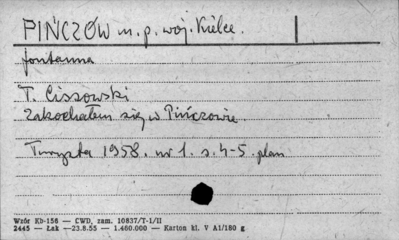 PIŃCZÓW m. p. woj. Kielce.
fontanna
T. Cissowski
Zakochałem się w Pińczowie.
Turysta 1958. nr 1. s. 4-5. plan
Wzór Kb-156 — CWD, zam. 10837/T-1/II
2445 — Łak — 23.8.55 — 1.460.000 — Karton kl. V A1/180 g